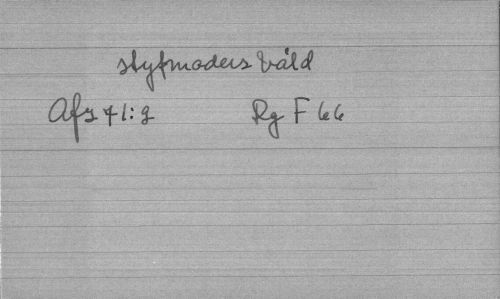 styfmoders våld
Afz 41:2 Rg F 66